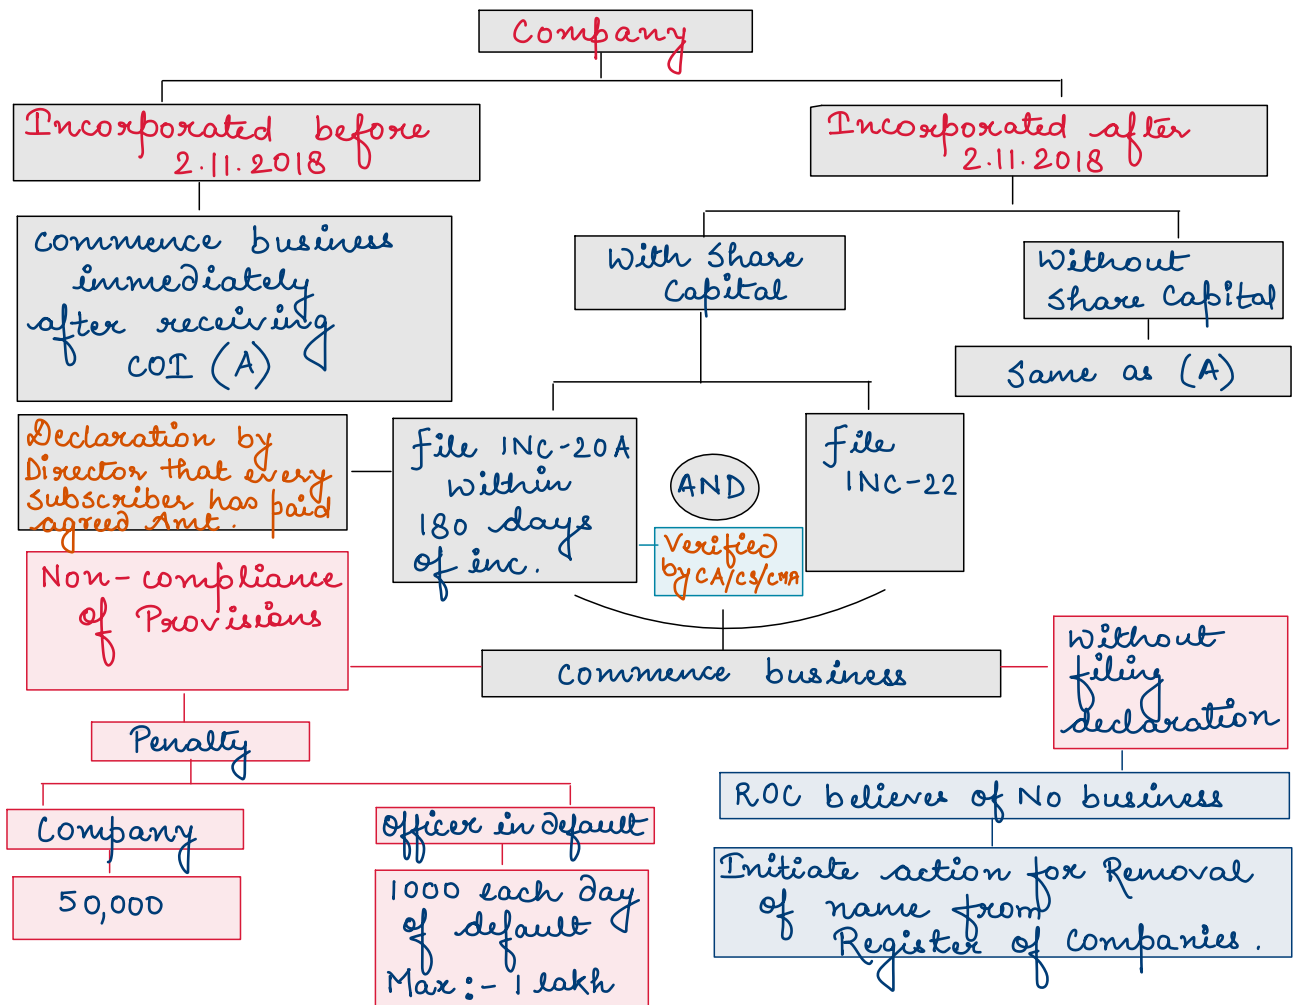 Company
Incorporated before
2.11.2018
Incorporated after
2.11.2018
Commence business
immediately
after receiving
COI (A)
With Share
Capital
Without
Share Capital
Same as (A)
Declaration by
Director that every
subscriber has paid
agreed Amt.
File INC-20A
within
180 days
of inc.
AND
Verified
by CA/CS/CMA
File
INC-22
Non-compliance
of Provisions
Commence business
Without
filing
declaration
Penalty
Company
50,000
Officer in default
1000 each day
of default
Max:- 1 lakh
ROC believes of No business
Initiate action for Removal
of name from
Register of Companies.